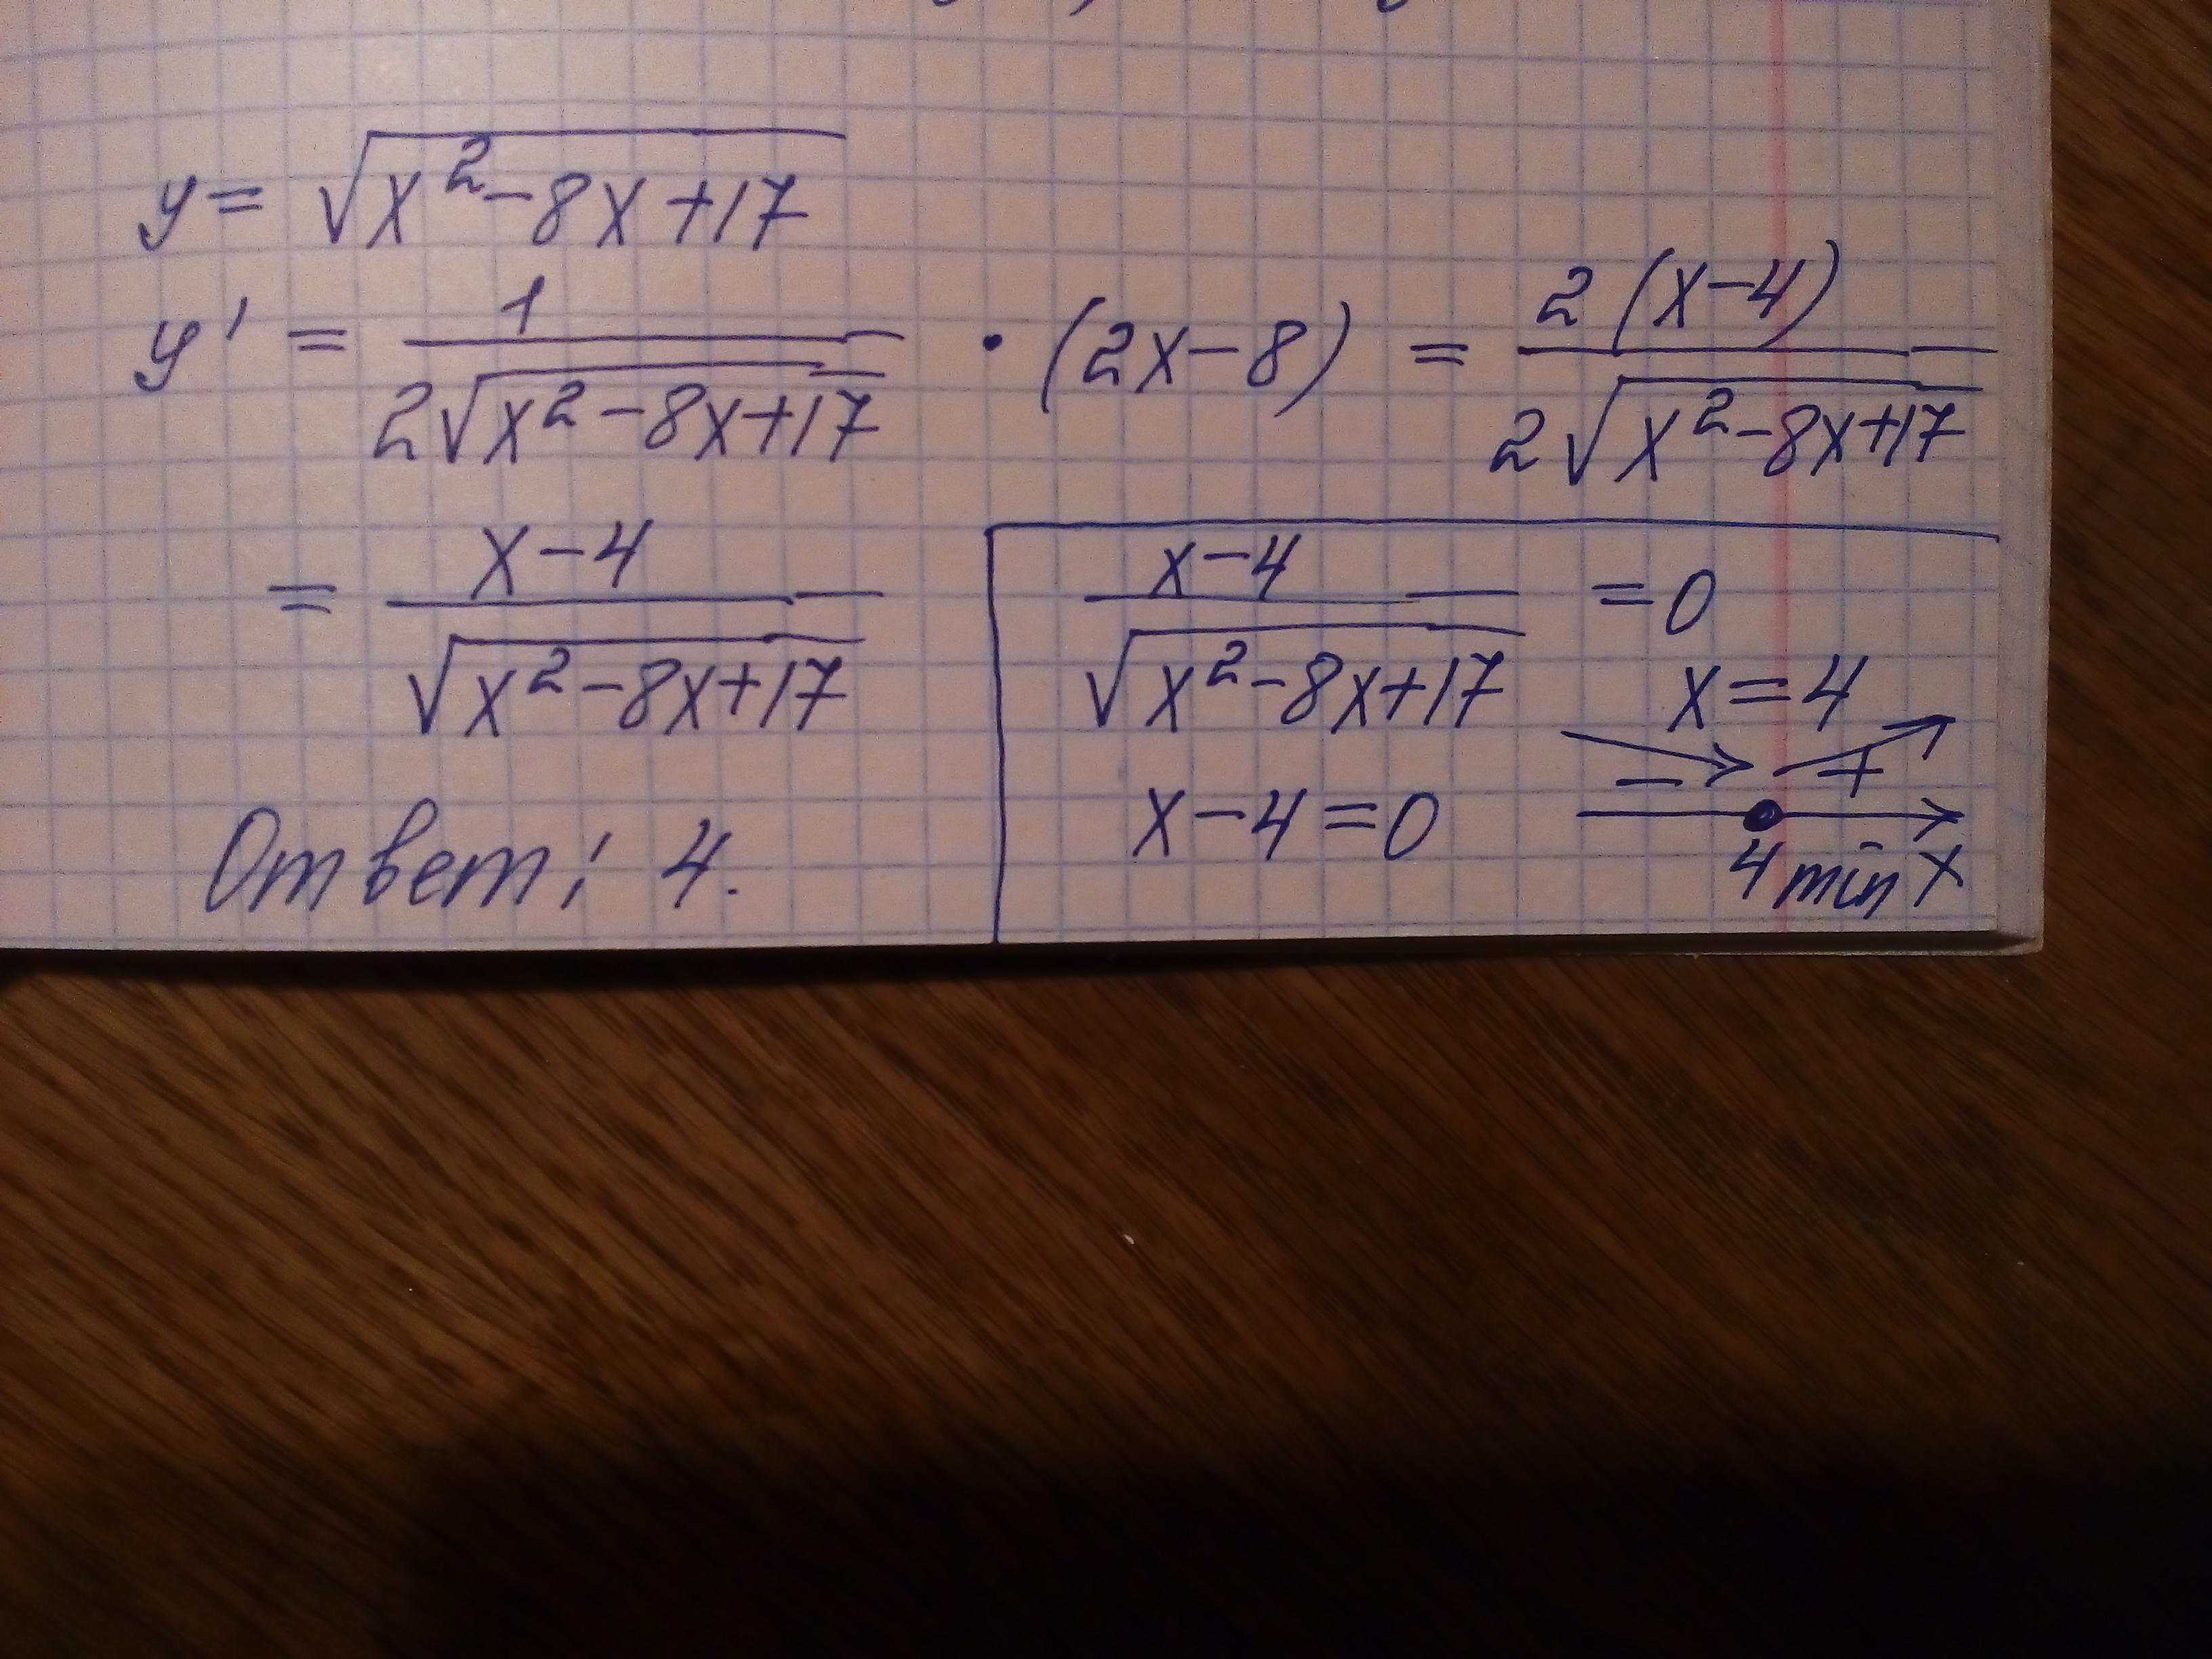 y = √(x² - 8x + 17)
y' = 1 / (2√(x² - 8x + 17)) · (2x - 8) = 2(x - 4) / (2√(x² - 8x + 17))
= (x - 4) / √(x² - 8x + 17)
(x - 4) / √(x² - 8x + 17) = 0
x - 4 = 0
x = 4
- +
4 min x
Ответ: 4.